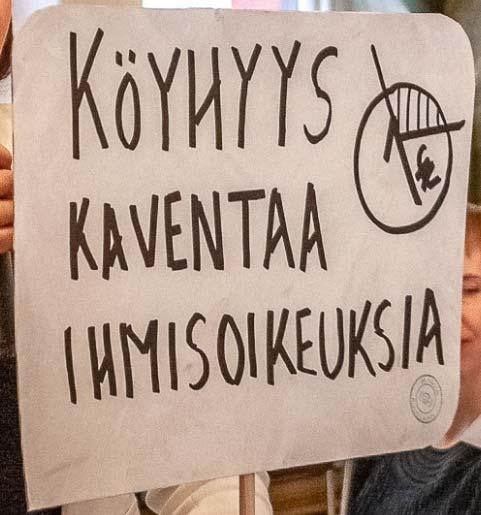 KÖYHYYS
KAVENTAA
IHMISOIKEUKSIA